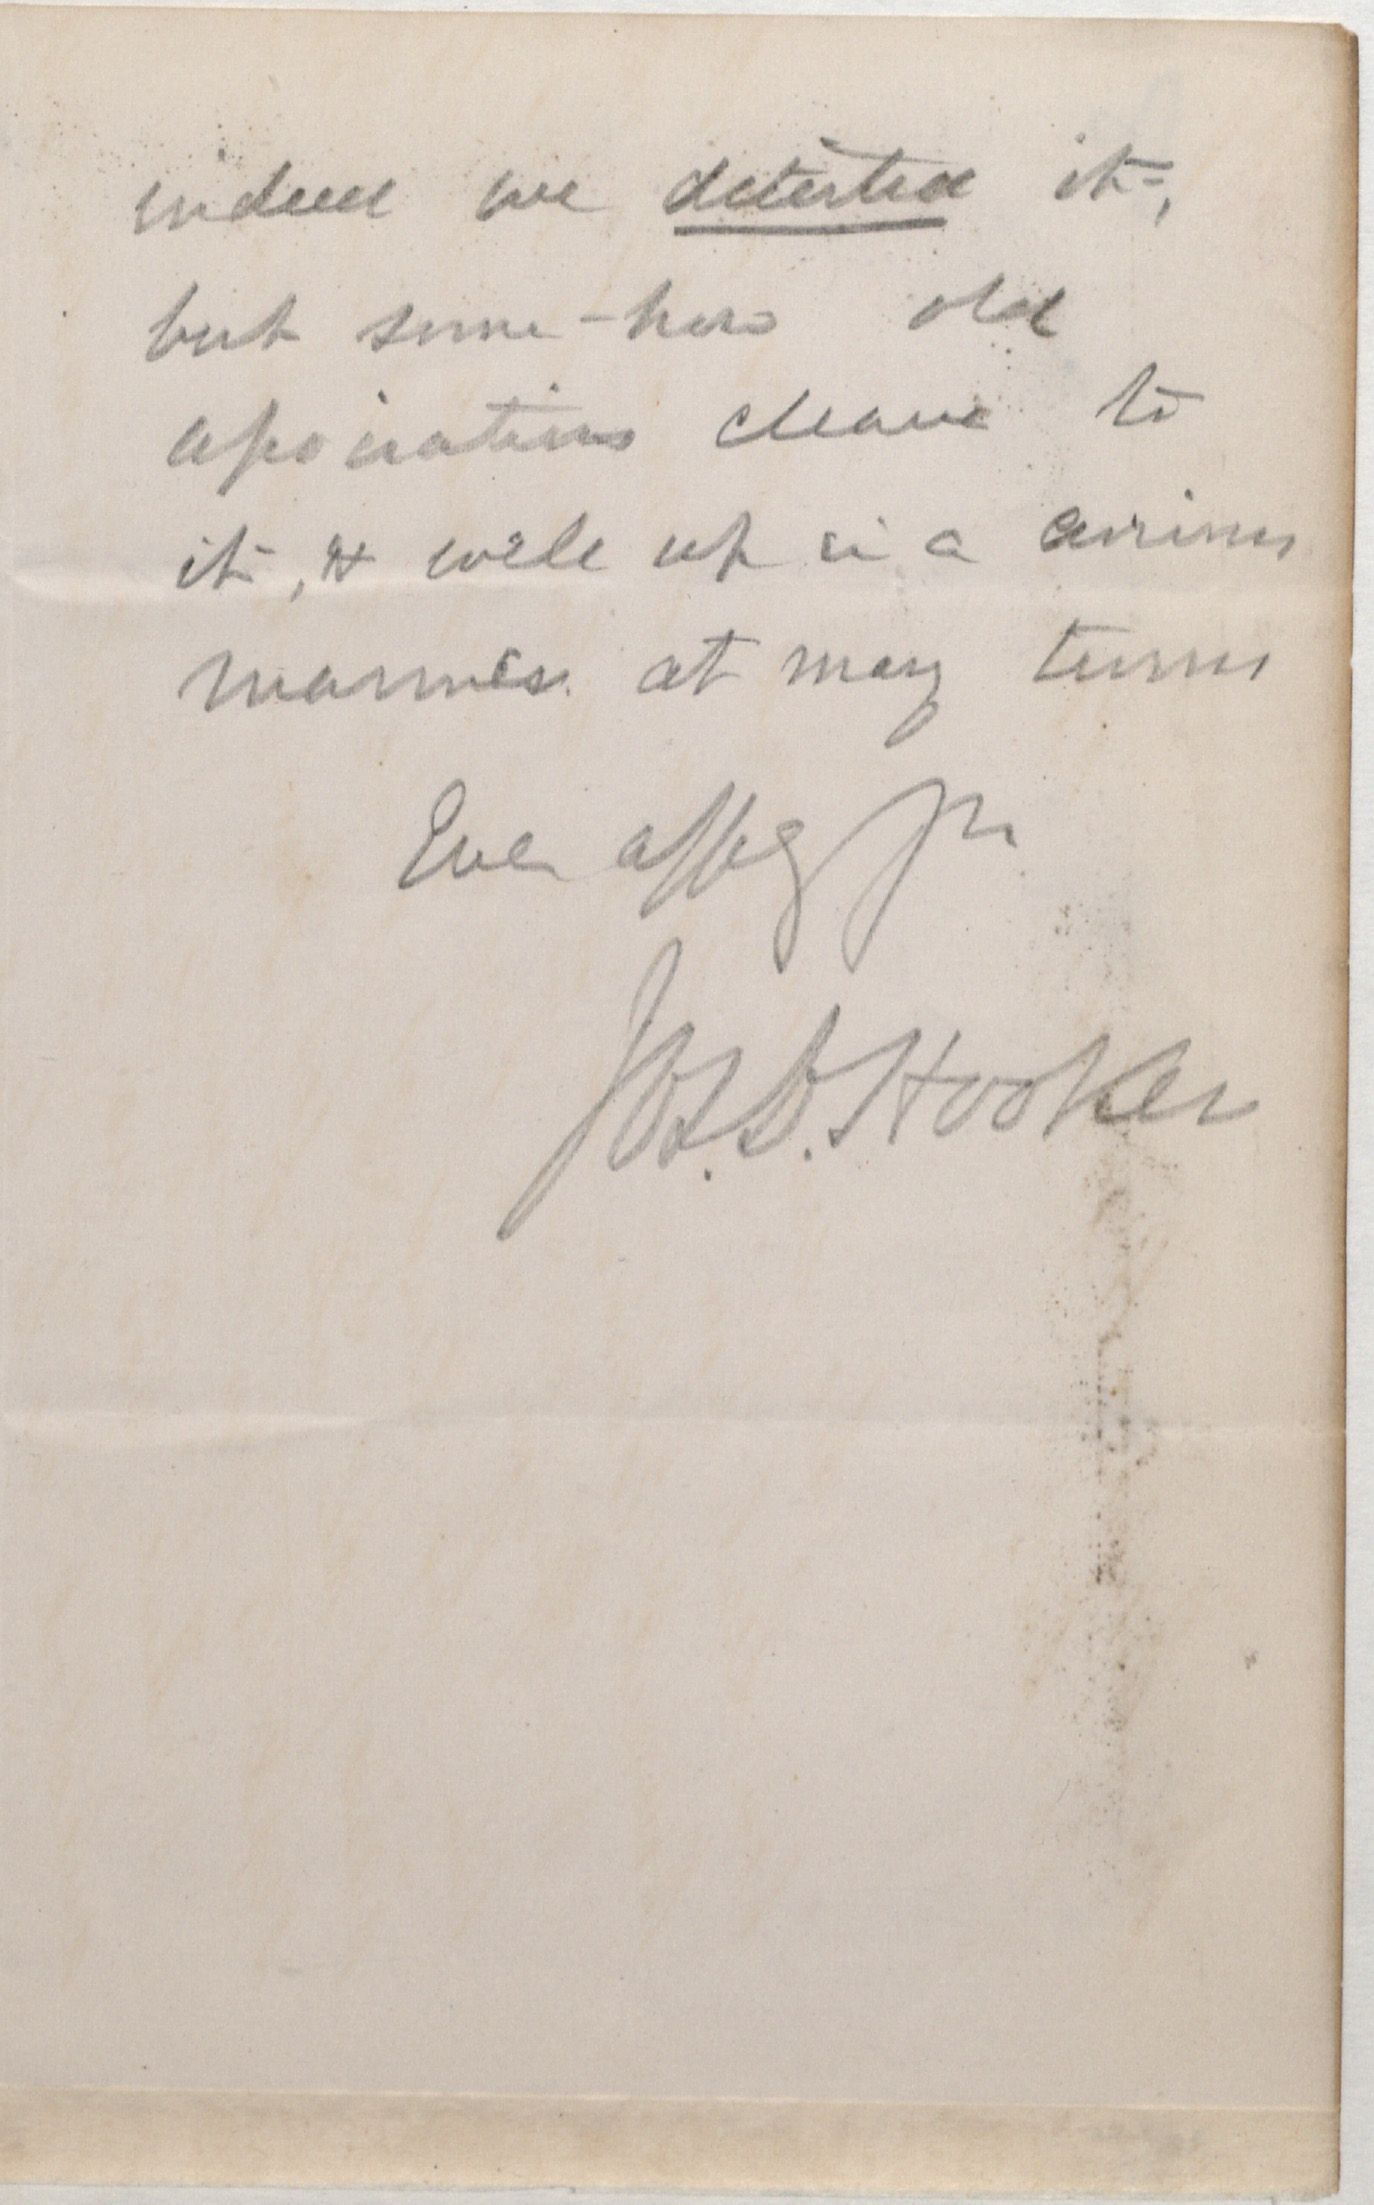 indeed we detested it,
but some-how old
associations cleave to
it, & well up in a curious
manner at many turns
Ever affy yrs
Jos. D. Hooker